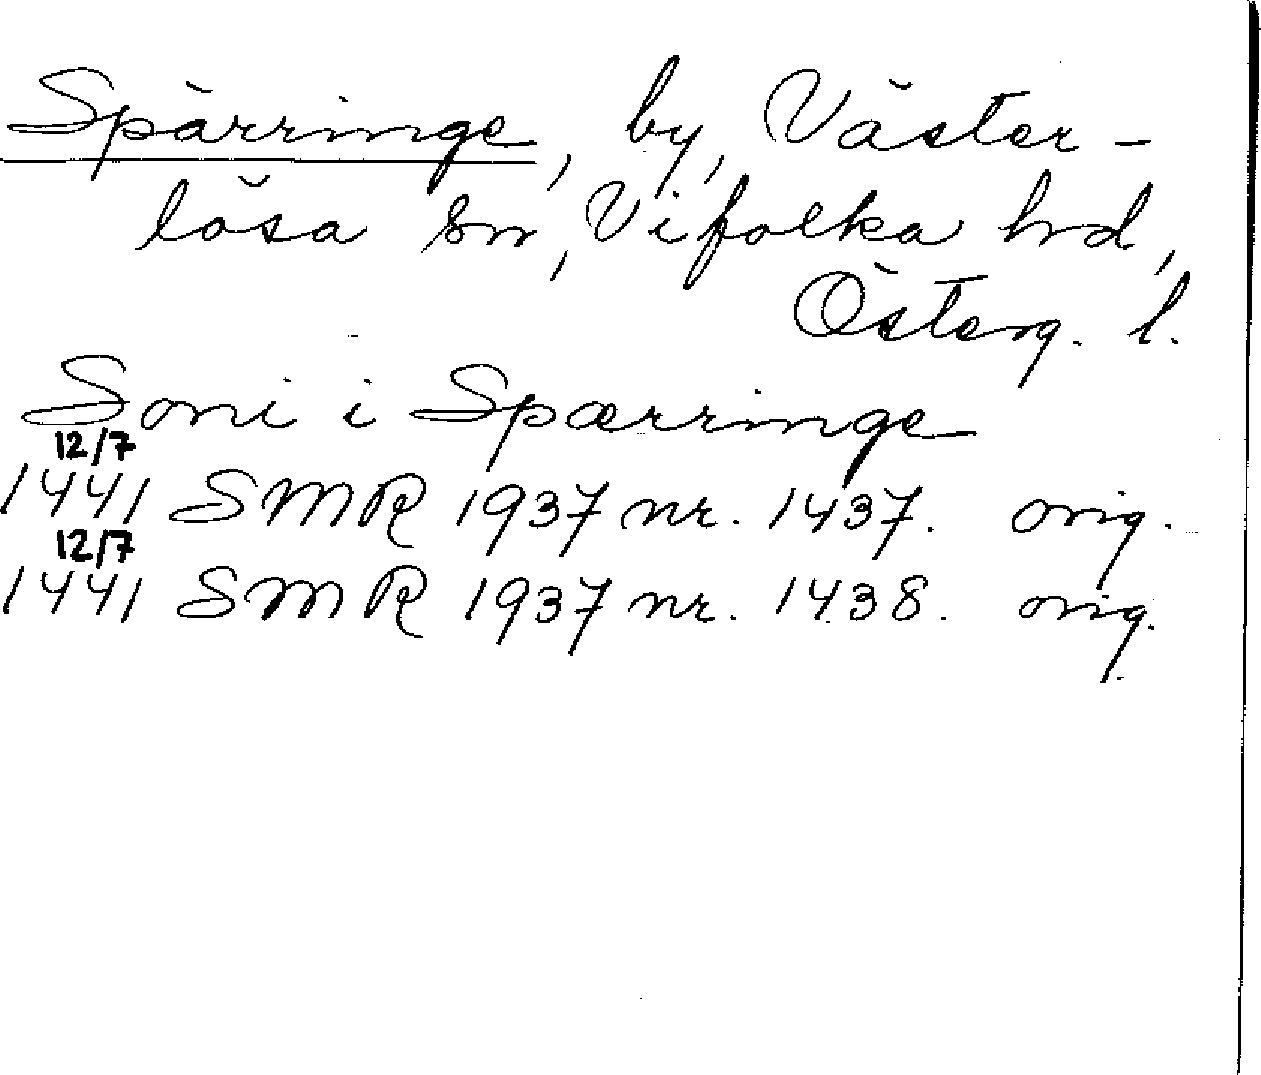 Spärringe, by, Väster-
lösa sn, Vifolka hrd,
Österg. l.
Soni i Spærringe
12/7
1441 SMR 1937 nr. 1437. orig.
12/7
1441 SMR 1937 nr. 1438. orig.